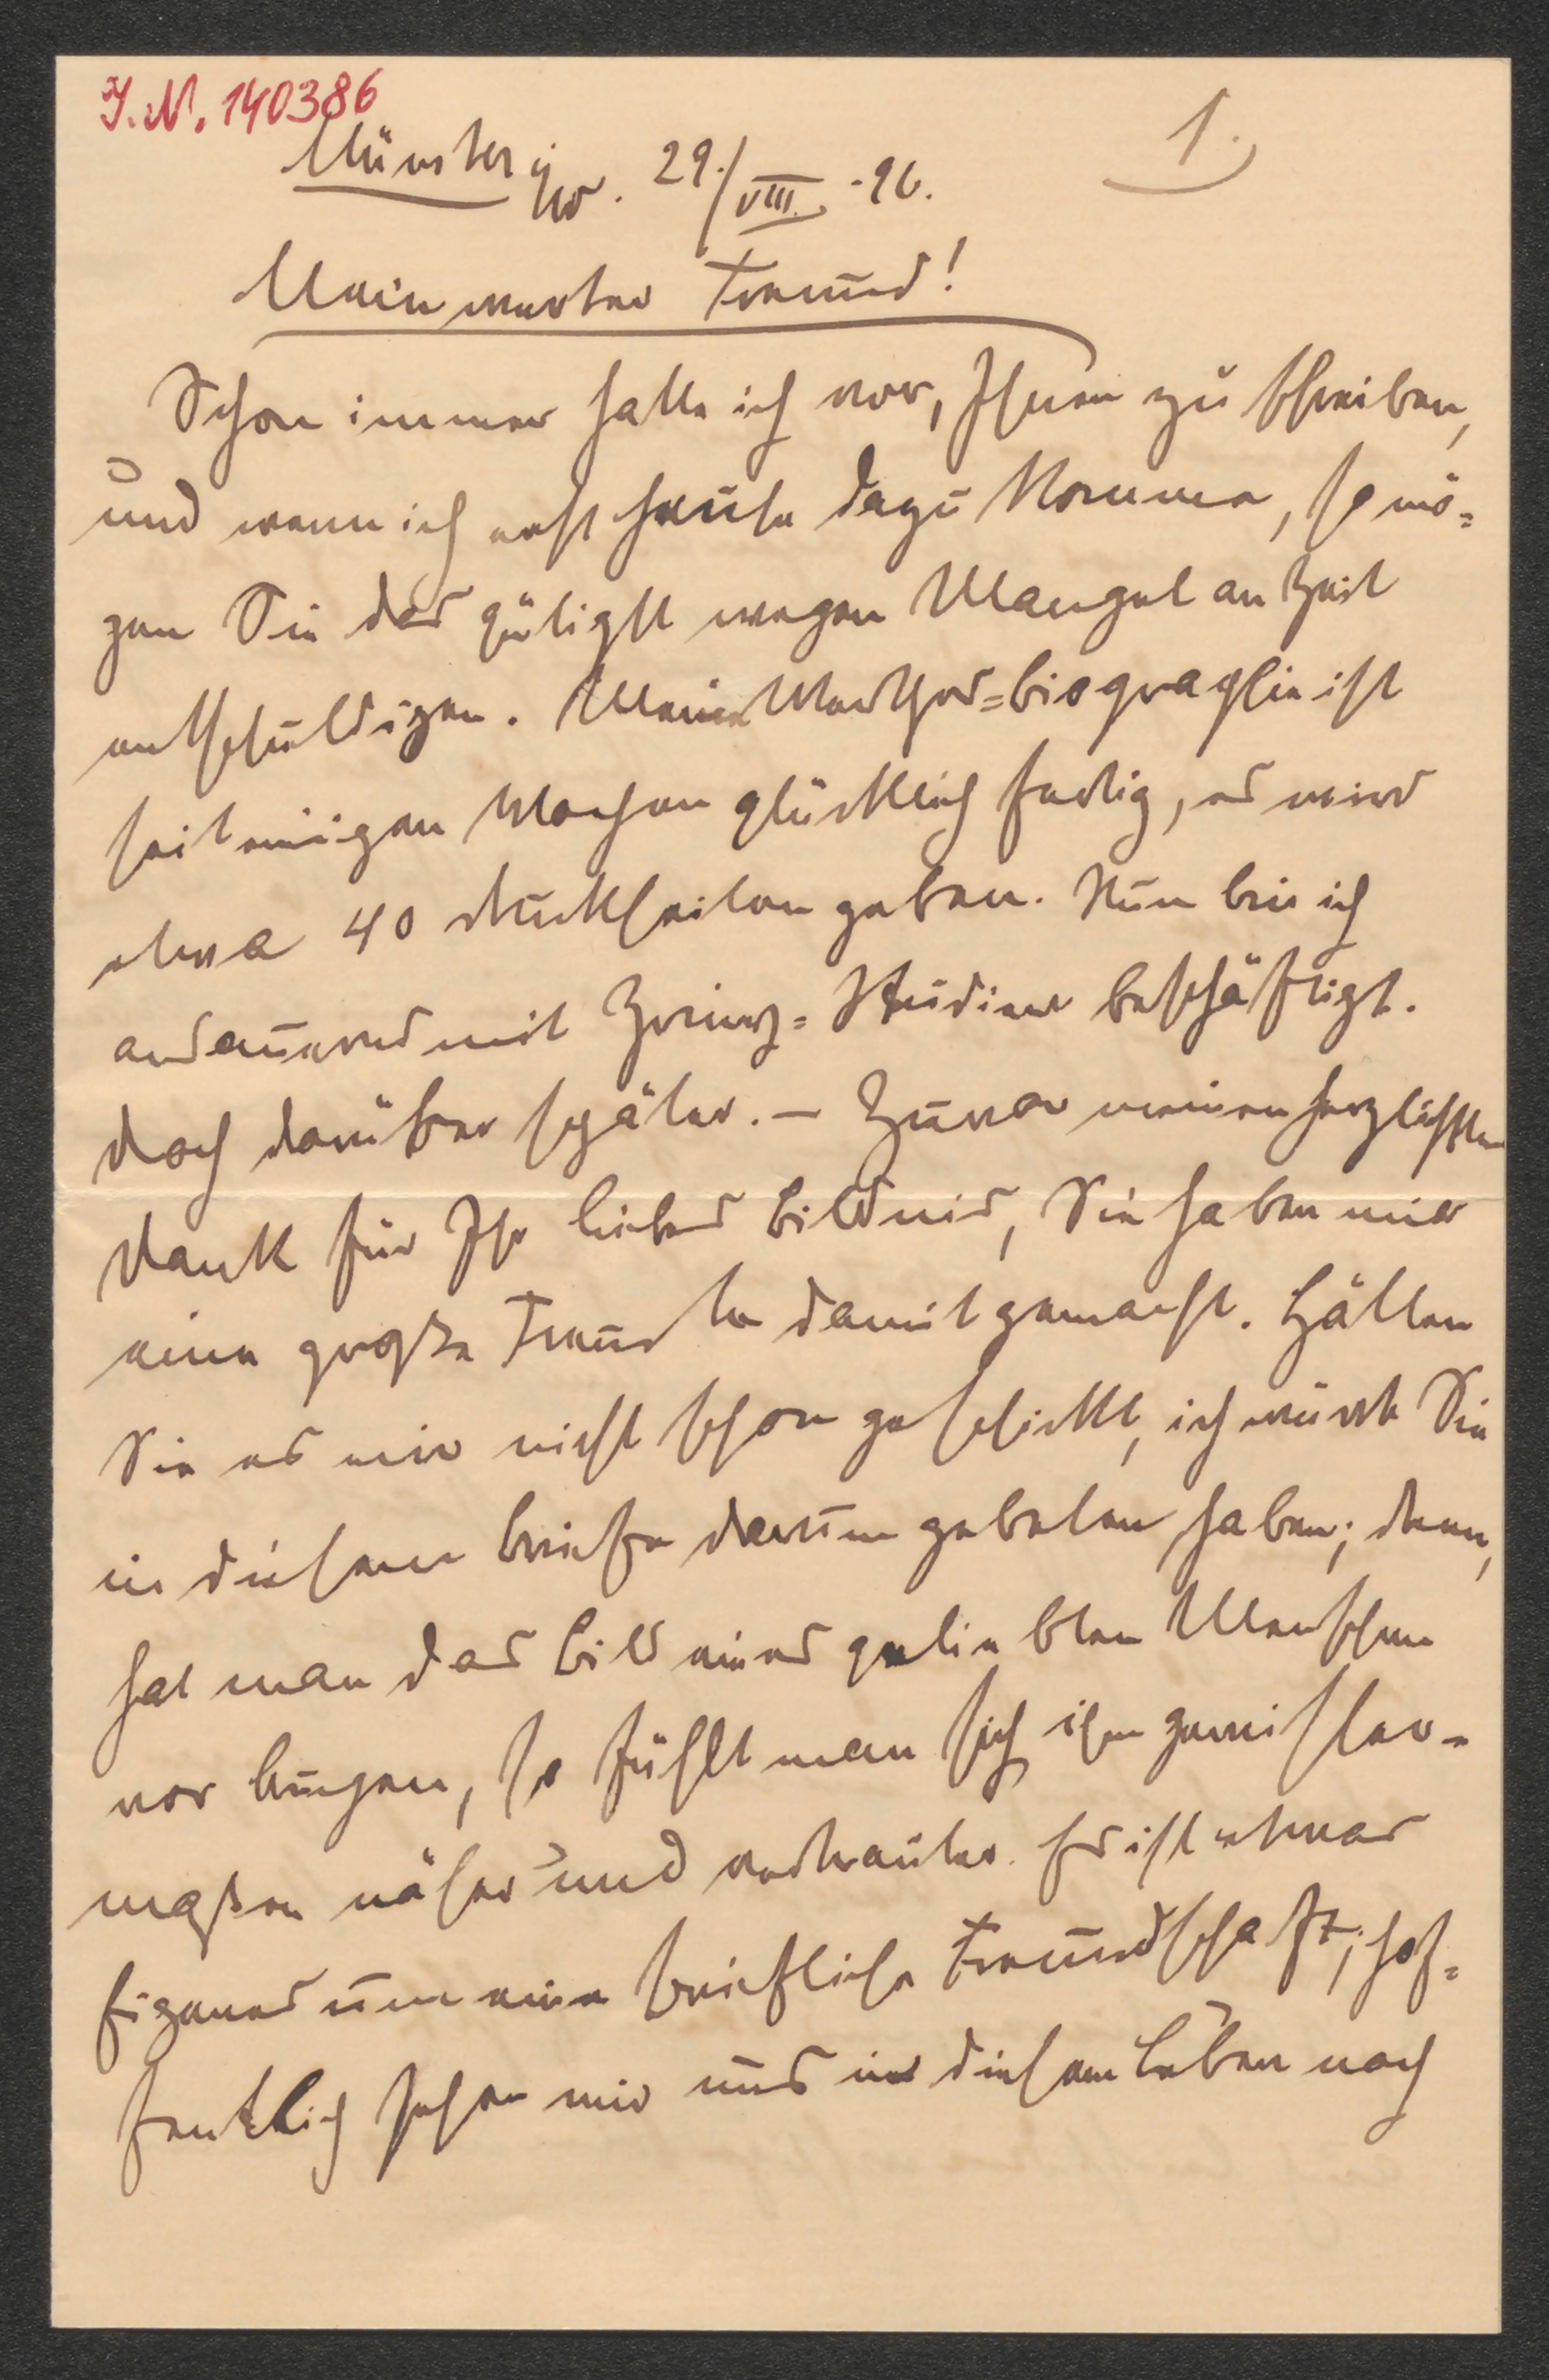 J.N. 140386
1.
Münster i/W. 29./VIII. -96.
Mein werter Freund!
Schon immer hatte ich vor, Ihnen zu schreiben,
und wenn ich erst heute dazu komme, so mö=
gen Sie das gütigst wegen Mangel an Zeit
entschuldigen. Meine =biographie ist
seit einigen Wochen glücklich fertig, es wird
etwa 40 Druckseiten geben. Nun bin ich
andauernd mit Zriny=Studien beschäftigt.
Doch darüber später. – Zuvor meinen herzlichsten
Dank für Ihr liebes Bildnis, Sie haben mir
eine große Freude damit gemacht. Hätten
Sie es mir nicht schon geschickt, ich würde Sie
in diesem Briefe darum gebeten haben; denn,
hat man das Bild eines geliebten Menschen
vor Augen, so fühlt man sich ihm gewisser-
maßen näher und vertrauter. Es ist etwas
Eigenes um eine briefliche Freundschaft; hof=
fentlich sehen wir uns in diesem Leben noch